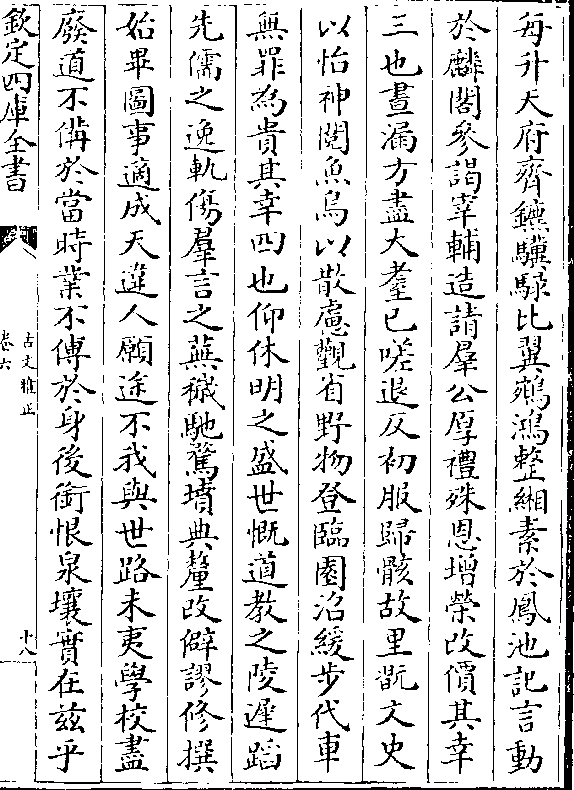 每升天府齊鑣驥騄比翼鵷鴻整緗素於鳳池記言動
於麟閣參謁宰輔造請羣公厚禮殊恩增榮改價其幸
三也晝漏方盡大耋已嗟退反初服歸骸故里翫文史
以怡神閱魚鳥以散慮觀省野物登臨園沼緩步代車
無罪為貴其幸四也仰休明之盛世慨道教之陵遲蹈
先儒之逸軌傷羣言之蕪穢馳騖墳典釐改僻謬修撰
始畢圖事適成天違人願途不我與世路未夷學校盡
廢道不備於當時業不傳於身後銜恨泉壤實在兹乎
欽定四庫全書
古文雅正
卷六
十八